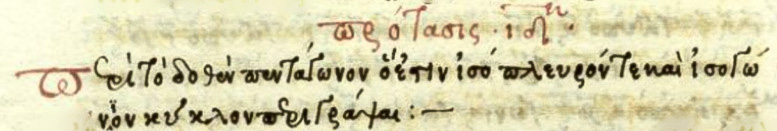 πρότασις · ιδη ·
Περὶ τὸ δοθὲν πεντάγωνον ὅ ἐστιν ἰσόπλευρόν τε καὶ ἰσογώ
νιον κύκλον περιγράψαι : —